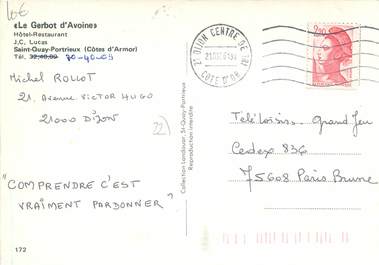 10€
«Le Gerbot d'Avoine»
Hôtel-Restaurant
J.C. Lucas
Saint-Quay-Portrieux (Côtes d'Armor)
Tél. 70-40-09
Michel ROLLOT
21. Avenue Victor HUGO
21000 DIJON
22)
"COMPRENDRE C'EST
VRAIMENT PARDONNER"
172
Collection Landouar, St-Quay-Portrieux
Reproduction interdite
21 DIJON CENTRE DE TRI
COTE D'OR
Télé Loisirs. Grand Jeu
Cedex 836
75608 Paris Brune